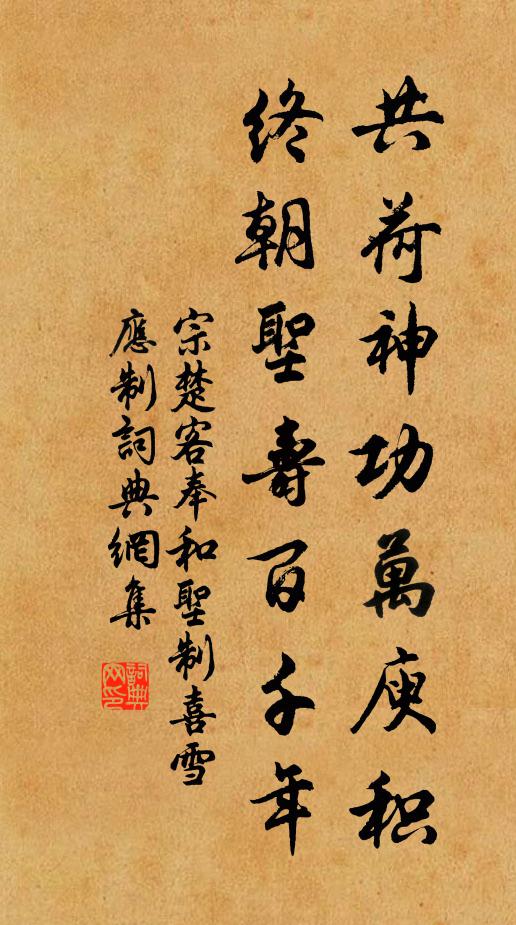 共荷神功萬庾积
終朝聖壽百千年
宗楚客奉和聖制喜雪
應制詞典網集
詞典网印